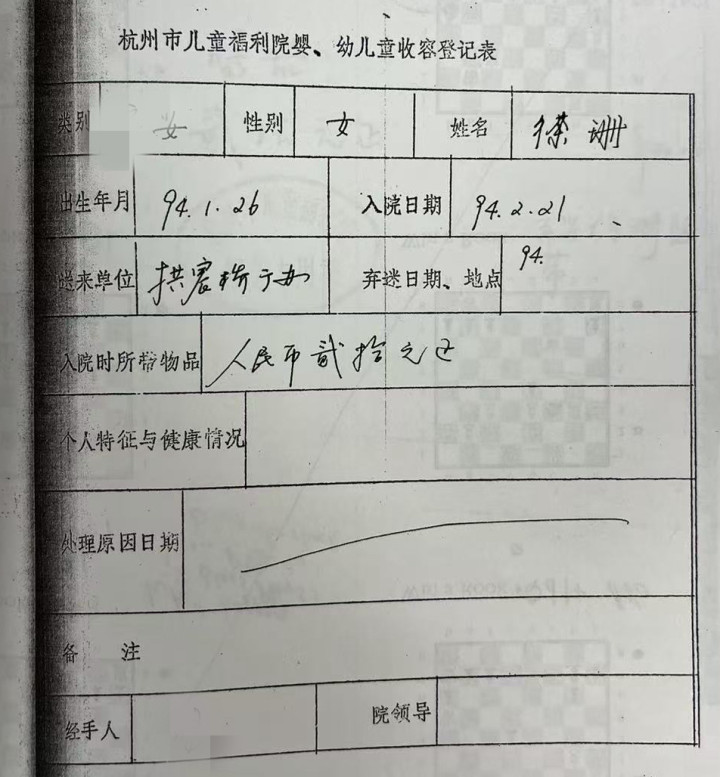 杭州市儿童福利院婴、幼儿童收容登记表
类别 女 性别 女 姓名 珊
出生年月 94.1.26 入院日期 94.2.21
送来单位 拱宸桥 办 弃迷日期、地点 94.
入院时所带物品 人民币贰拾元正
个人特征与健康情况
处理原因日期
备 注
经手人 院领导